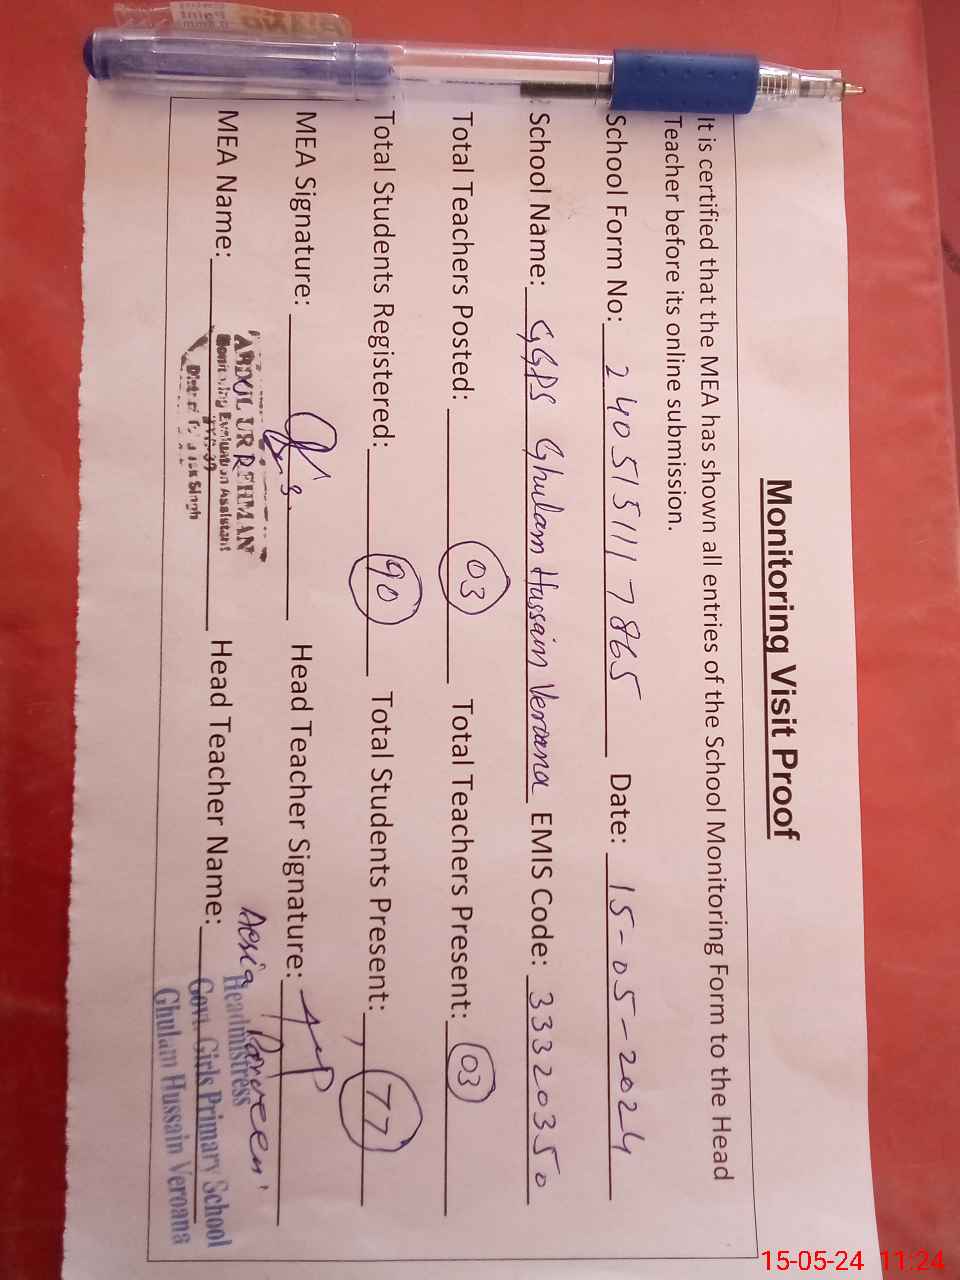 Monitoring Visit Proof
It is certified that the MEA has shown all entries of the School Monitoring Form to the Head
Teacher before its online submission.
School Form No: 2405151117865 Date: 15-05-2024
School Name: GGPS Ghulam Hussain Veroana EMIS Code: 33320350
Total Teachers Posted: 03 Total Teachers Present: 03
Total Students Registered: 90 Total Students Present: 77
MEA Signature: Head Teacher Signature:
MEA Name: ABDUL UR REHMAN Head Teacher Name: Aasia Parveen
Monitoring Evaluation Assistant
Singh
Headmistress
Govt. Girls Primary School
Ghulam Hussain Veroana
15-05-24 11:24